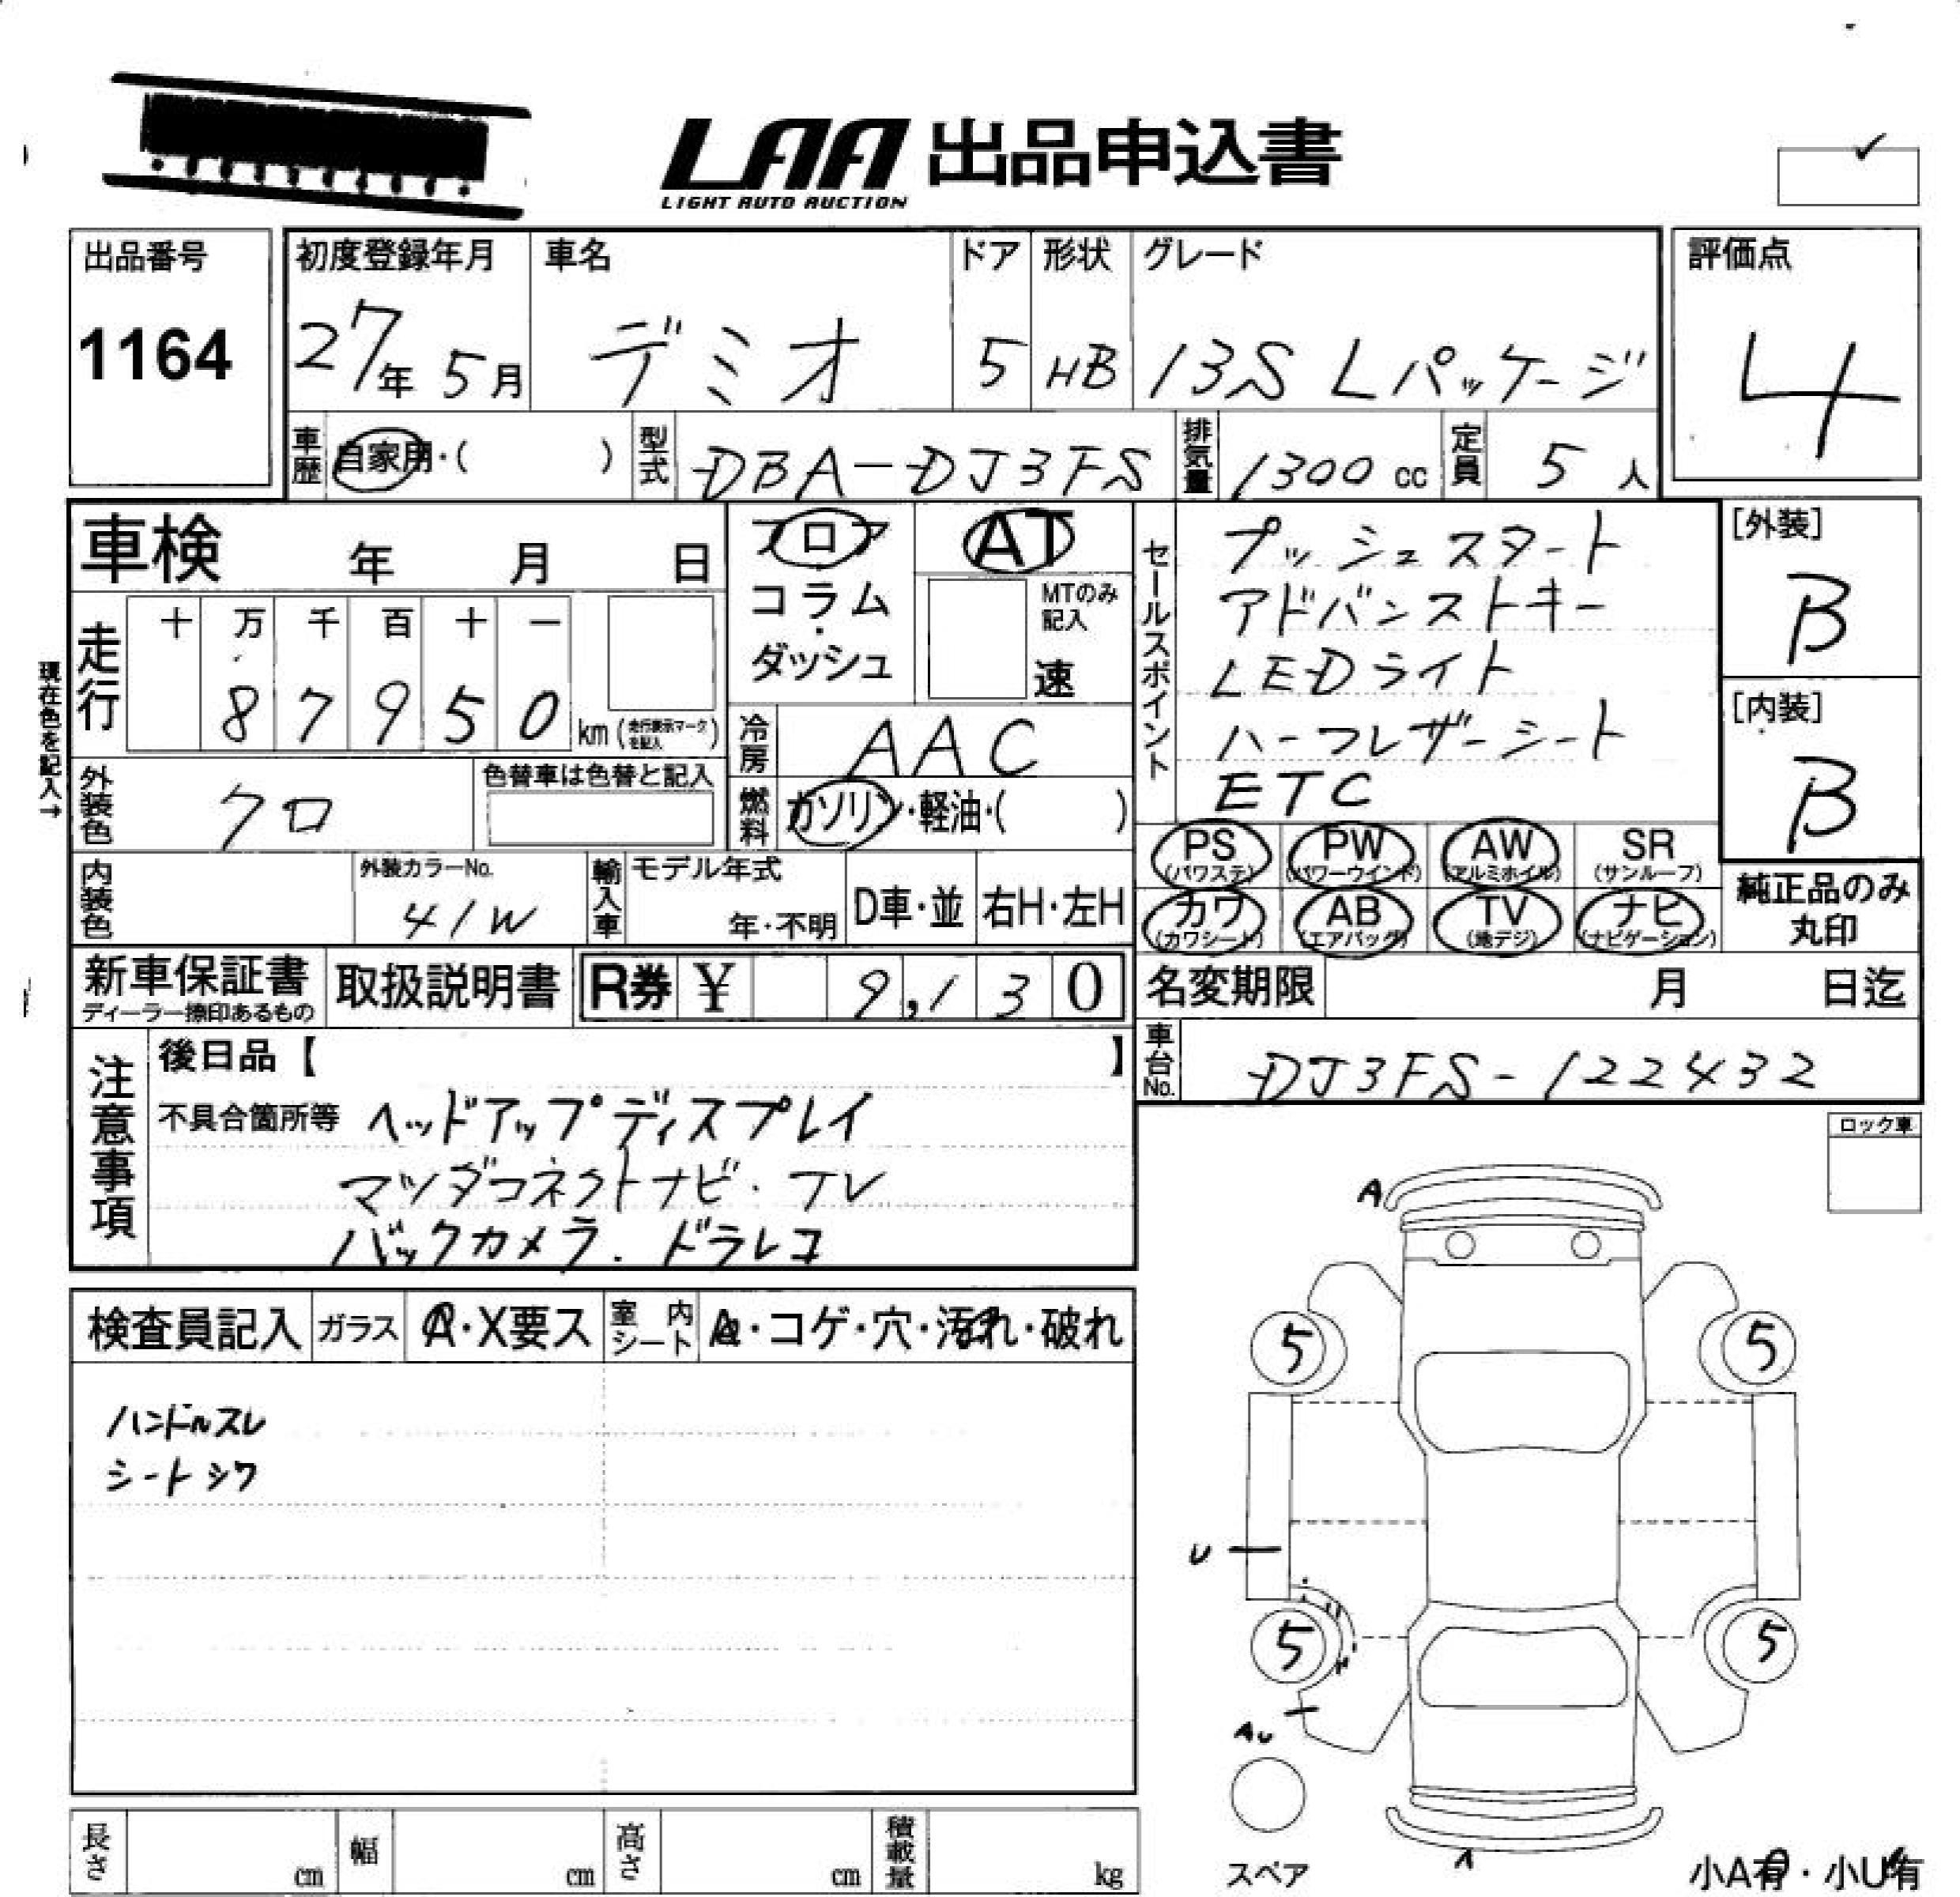 LAA 出品申込書
LIGHT AUTO AUCTION
出品番号
1164
初度登録年月
27年 5月
車名
デミオ
ドア
5
形状
HB
グレード
13S Lパッケージ
評価点
4
車歴 自家用・( )
型式 DBA-DJ3FS
排気量 1300 cc
定員 5 人
車検 年 月 日
フロア
コラム
・
ダッシュ
AT
MTのみ
記入
速
セールスポイント
プッシュスタート
アドバンストキー
LEDライト
ハーフレザーシート
ETC
[外装]
B
[内装]
B
現在色を記入→
走行
十 万 千 百 十 一
8 7 9 5 0 km (走行表示マークを記入)
冷房 AAC
外装色 クロ
色替車は色替と記入
燃料 ガソリン・軽油・( )
PS (パワステ)
PW (パワーウインド)
AW (アルミホイル)
SR (サンルーフ)
カワ (カワシート)
AB (エアバッグ)
TV (地デジ)
ナビ (ナビゲーション)
純正品のみ
丸印
内装色
外装カラーNo.
41W
輸入車
モデル年式
年・不明
D車・並
右H・左H
新車保証書
ディーラー捺印あるもの
取扱説明書
R券 ¥ 9,130
名変期限 月 日迄
車台No. DJ3FS-122432
注意事項
後日品【 】
不具合箇所等 ヘッドアップディスプレイ
マツダコネクトナビ・TV
バックカメラ. ドラレコ
ロック車
検査員記入
ガラス
A・X要ス
室内シート
・コゲ・穴・汚れ・破れ
ハンドルスレ
シートシワ
A
5
5
U
5
5
AU
スペア
A
小A有・小U有
長さ cm
幅 cm
高さ cm
積載量 kg